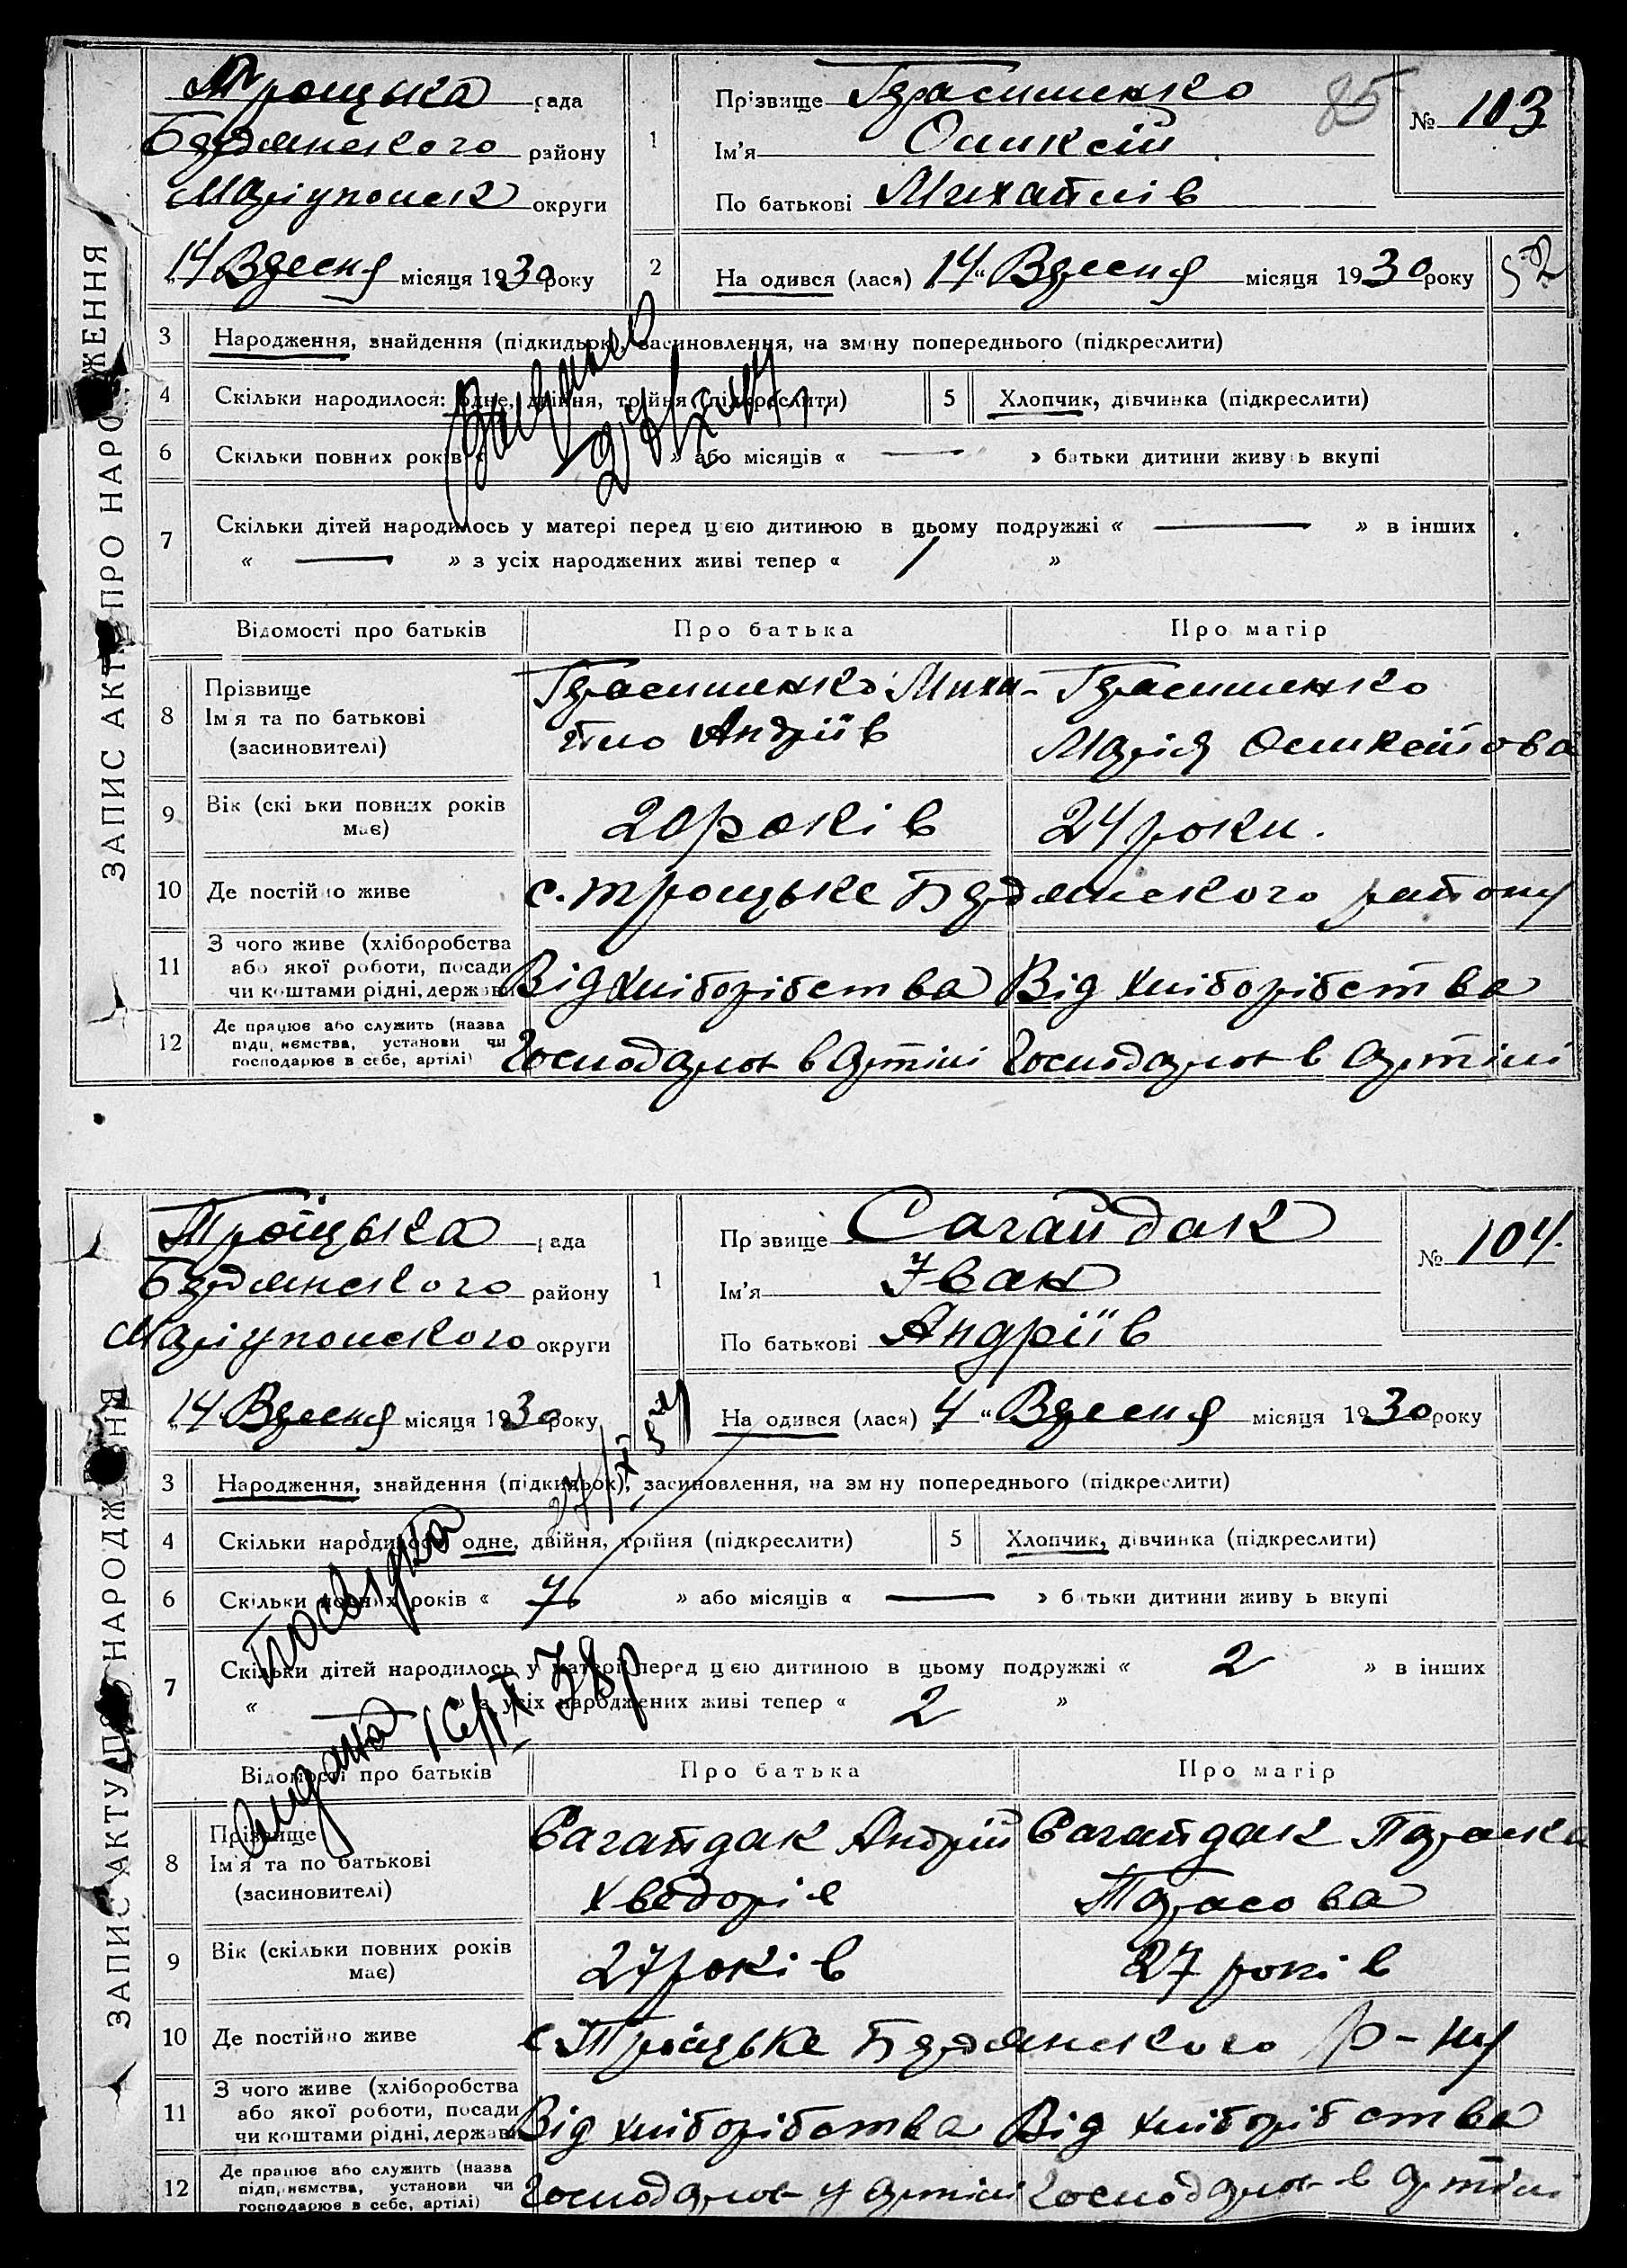 ЗАПИС АКТУ ПРО НАРОДЖЕННЯ
Троцька рада
Бердянского району
Маріупольск округи
"14 Вересня місяця 1930 року
1
Прізвище Герасименко
Ім'я Оликсій
По батькові Михайлів
85
№ 103
2
На одився (лася) 14 " Вересня місяця 1930 року
3 Народження, знайдення (підкидьок), засиновлення, на зміну попереднього (підкреслити)
4 Скільки народилося: одне, двійня, трійня (підкреслити) 5 Хлопчик, дівчинка (підкреслити)
6 Скільки повних років « » або місяців « — » батьки дитини живуть вкупі
7 Скільки дітей народилось у матері перед цією дитиною в цьому подружжі « — » в інших
« — » з усіх народжених живі тепер « 1 »
Відомості про батьків Про батька Про матір
8 Прізвище
Ім'я та по батькові
(засиновителі)
Герасименко Миха-
йло Андріїв
Герасименко
Марія Оликсійова
9 Вік (скільки повних років
має)
20 років 24 роки.
10 Де постійно живе с. Троцьке Бердянского району
11 З чого живе (хліборобства
або якої роботи, посади
чи коштами рідні, держави
Від хліборібства Від хліборібства
12 Де працює або служить (назва
підприємства, установи чи
господарює в себе, артілі)
Господарює в артілі Господарює в артілі
ЗАПИС АКТУ ПРО НАРОДЖЕННЯ
Троїцька рада
Бердянского району
Маріупольского округи
"14 Вересня місяця 1930 року
1
Прізвище Сагайдак
Ім'я Іван
По батькові Андріїв
№ 104.
На одився (лася) 4 " Вересня місяця 1930 року
3 Народження, знайдення (підкидьок), засиновлення, на зміну попереднього (підкреслити)
4 Скільки народилося одне, двійня, трійня (підкреслити) 5 Хлопчик, дівчинка (підкреслити)
6 Скільки повних років « 7 » або місяців « — » батьки дитини живуть вкупі
7 Скільки дітей народилось у матері перед цією дитиною в цьому подружжі « 2 » в інших
« — » з усіх народжених живі тепер « 2 »
Відомості про батьків Про батька Про матір
8 Прізвище
Ім'я та по батькові
(засиновителі)
Сагайдак Андрій
Хведорів
Сагайдак Параска
Тарасова
9 Вік (скільки повних років
має)
27 років 27 років
10 Де постійно живе с Троїцьке Бердянского р-ну
11 З чого живе (хліборобства
або якої роботи, посади
чи коштами рідні, держави
Від хліборібства Від хліборібства
12 Де працює або служить (назва
підприємства, установи чи
господарює в себе, артілі)
Господарює у артілі Господарює в артілі